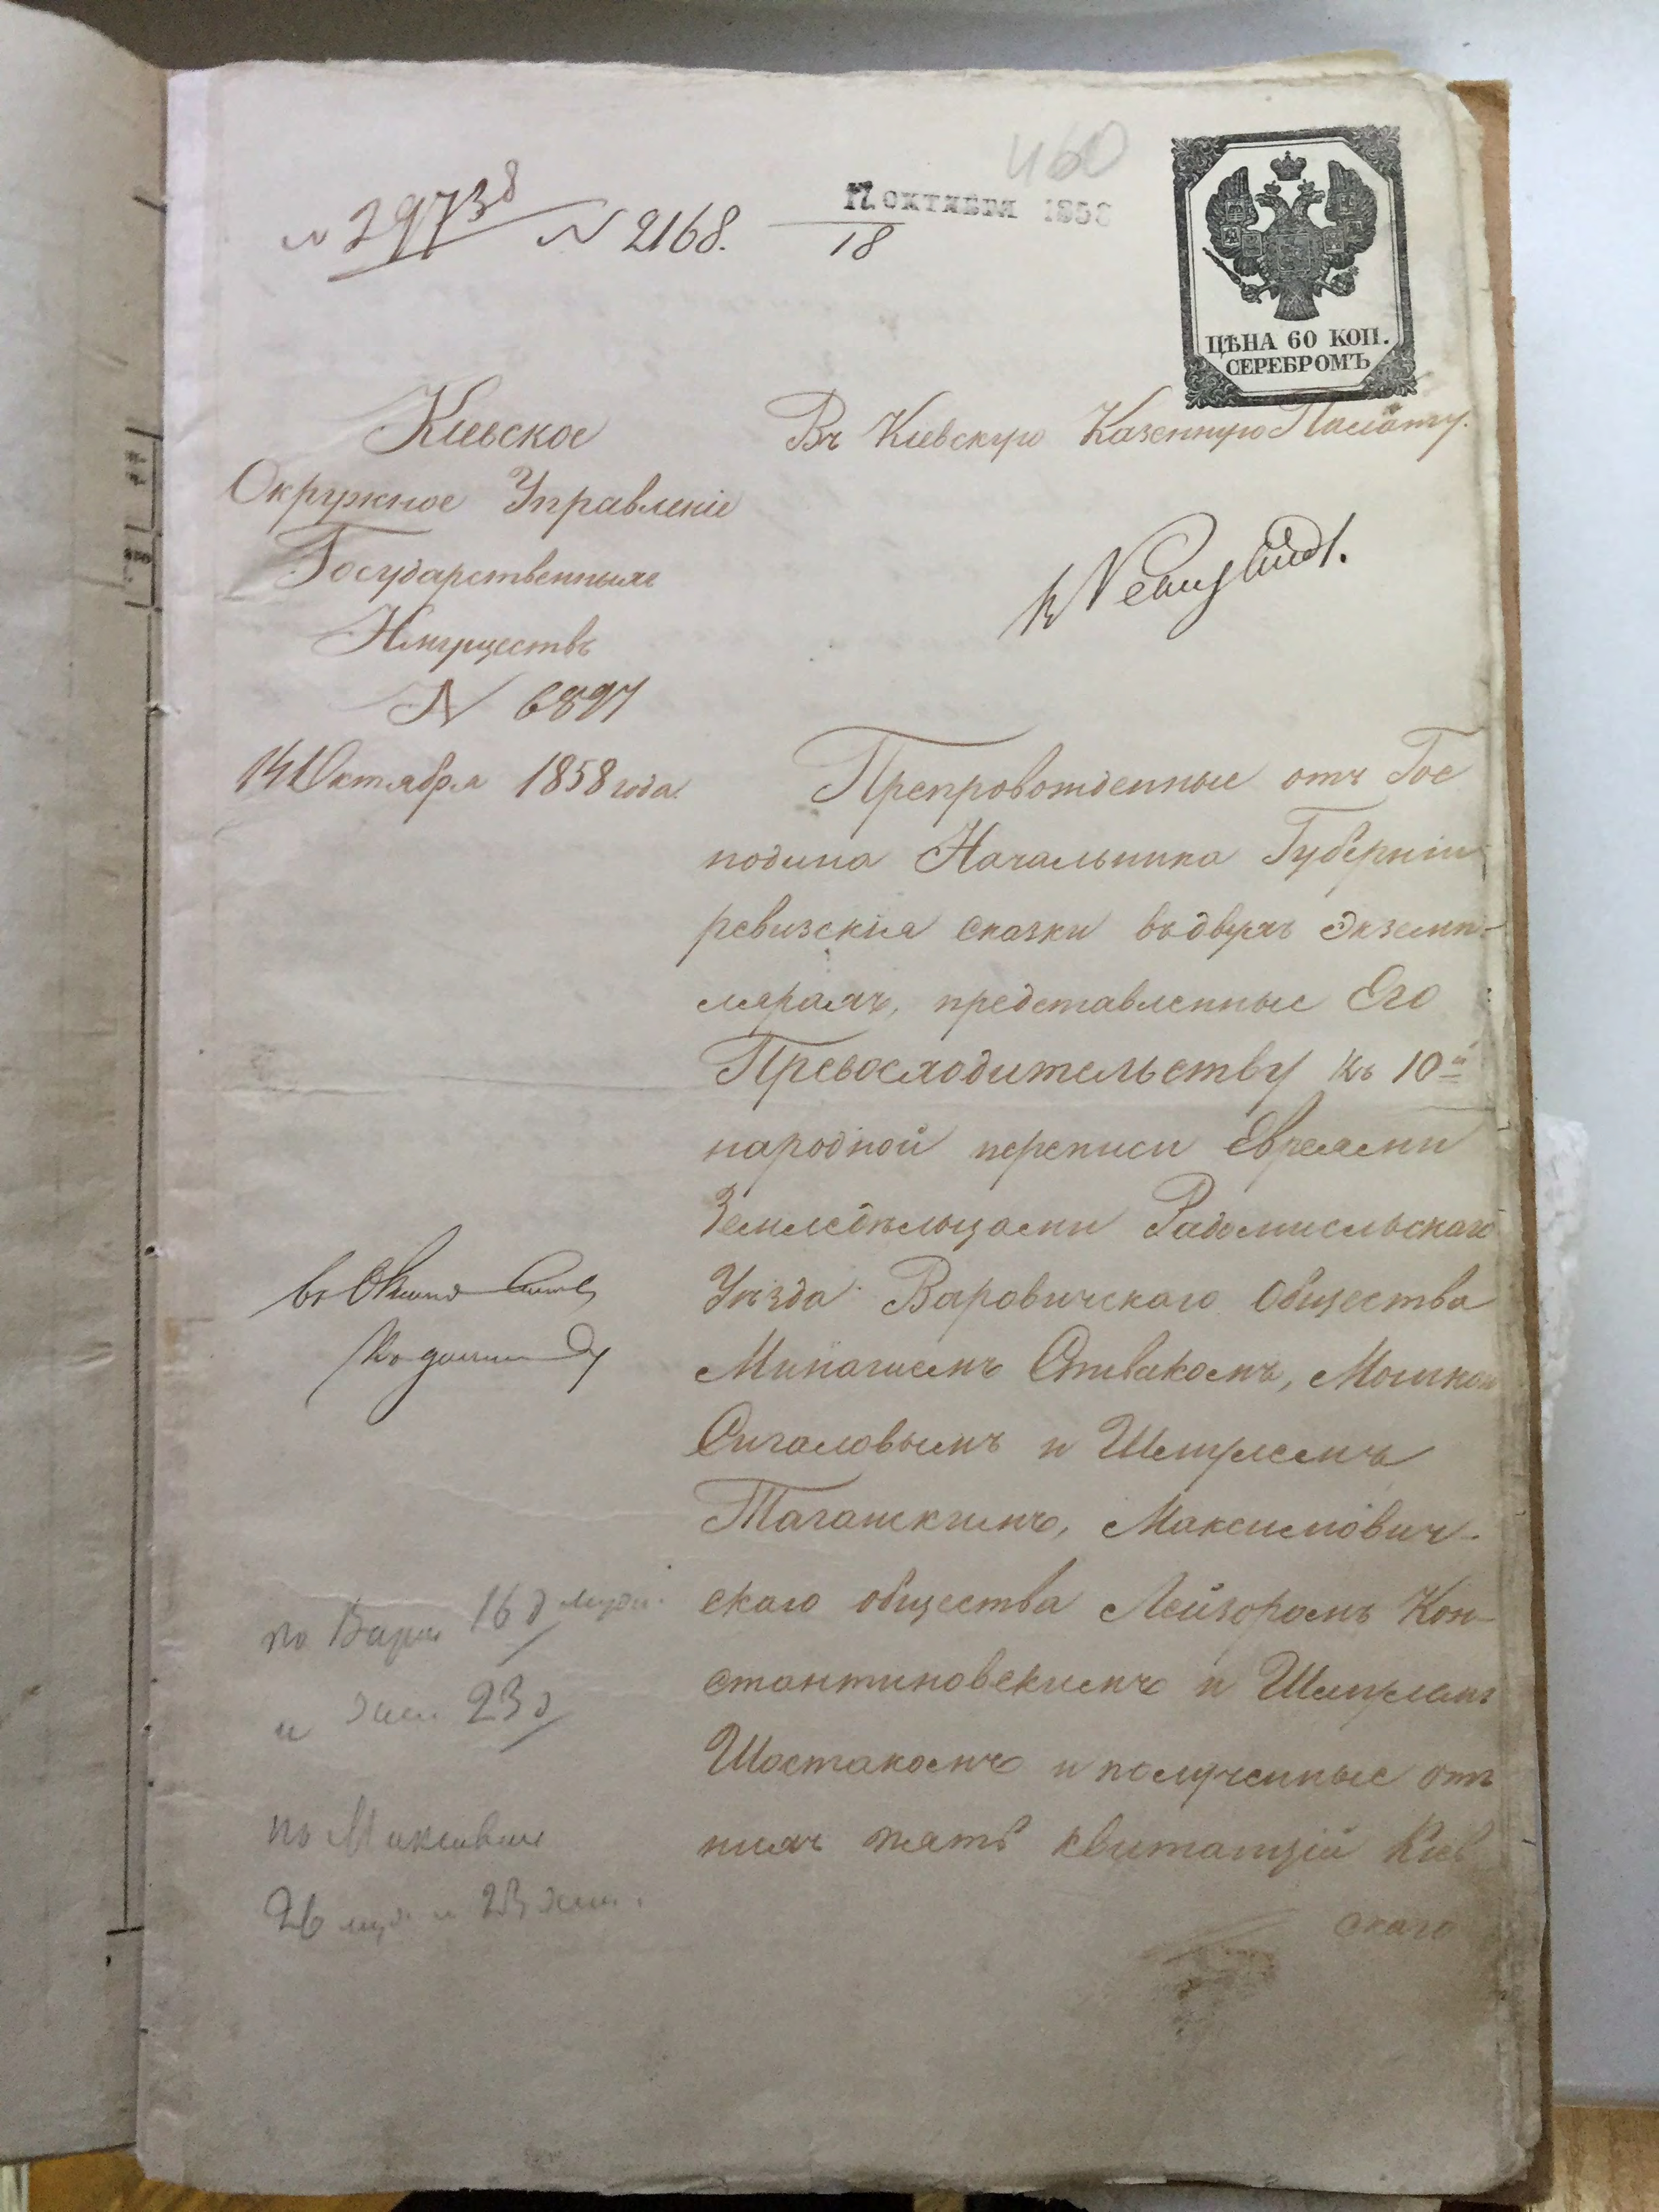 460
№ 29738 № 2168. 17 ОКТЯБРЯ 1858
18
ЦѢНА 60 КОП.
СЕРЕБРОМЪ
Кіевское
Окружное Управленіе
Государственныхъ
Имуществъ
N 6897
14 Октября 1858 года.
Въ Кіевскую Казенную Палату.
Препровожденные отъ Гос
подина Начальника Губерніи
ревизскія сказки въ двухъ экземп-
лярахъ, представленные Его
Превосходительству къ 10й
народной переписи Евреями
Земледѣльцами Радомисльскаго
Уѣзда Варовичскаго Общества
Спиваколъ, Мошкой
Сигаловымъ и Шмулемъ
Таганскимъ, Максимович-
скаго общества Лейзоромъ Кон-
стантиновскимъ и Шмулемъ
Шостакомъ и полученные отъ
нихъ пять квитанцій Кіев
скаго
по Вар 16 д муж.
и жен 23 д
по Максимов
26 муж и 23 жен.